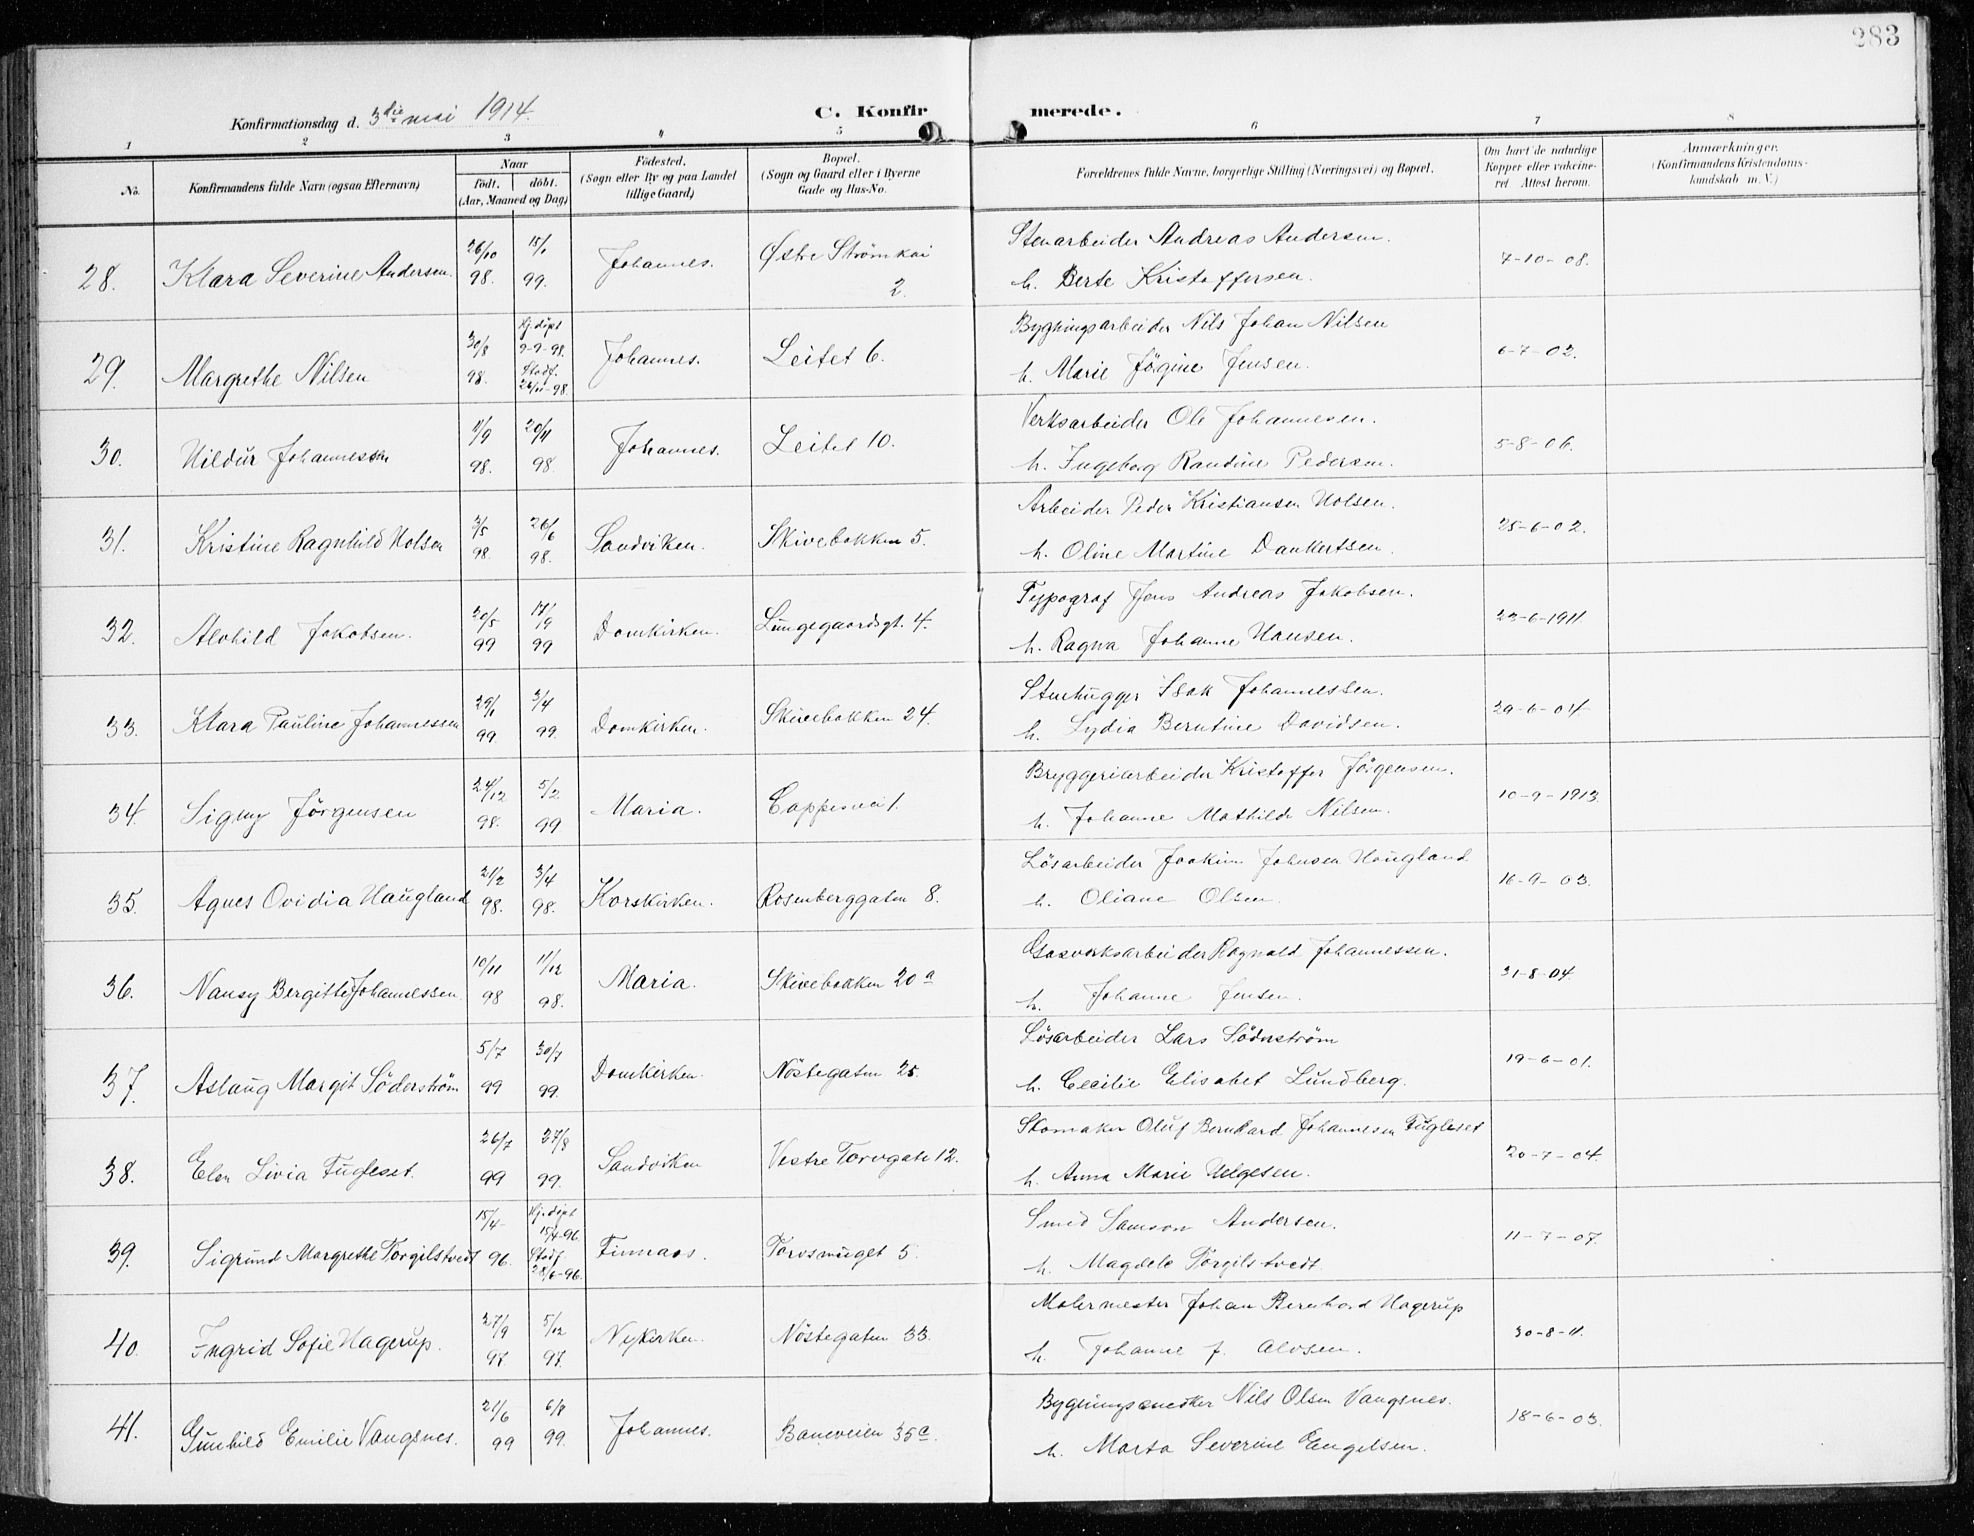 283
Konfirmationsdag d. 3die mai 1914.
C. Konfirmerede.
1 2 3 4 5 6 7 8
No.
Konfirmandens fulde Navn (ogsaa Efternavn)
Naar
födt. döbt.
(Aar, Maaned og Dag)
Födested.
(Sogn eller By og paa Landet
tillige Gaard)
Bopæl.
(Sogn og Gaard eller i Byerne
Gade og Hus-No.
Forældrenes fulde Navne, borgerlige Stilling (Næringsvei) og Bopæl.
Om havt de naturlige
Kopper eller vakcine-
ret Attest herom.
Anmærkninger.
(Konfirmandens Kristendoms-
kundskab m. V.)
28. Klara Severine Andersen. 26/10 98. 15/1 99. Johannes. Østre Strømkai 2.
Stenarbeider Andreas Andersen.
h. Berte Kristoffersen. 7-10-08.
29. Margrethe Nilsen 30/8 98. Hj. döpt 9-9-98. Stadf. 26/11-98. Johannes. Leitet 6.
Bygningsarbeider Nils Johan Nilsen
h. Marie Jörgine Jensen. 6-7-02.
30. Hildur Johannessen 11/9 98. 20/11 98. Johannes. Leitet 10.
Verksarbeider Ole Johannesen.
h. Ingeborg Randine Pedersen. 5-8-06.
31. Kristine Ragnhild Holsen 3/5 98. 26/6 98. Sandviken. Skivebakken 5.
Arbeider Peder Kristiansen Holsen.
h. Oline Martine Dankertsen. 25-6-02.
32. Alvhild Jakobsen. 20/5 99 17/9 99 Domkirken. Lungegaardsgt. 4.
Typograf Jens Andreas Jakobsen.
h. Ragna Johanne Hansen. 23-6-1911
33. Klara Pauline Johannessen 29/1 99. 3/4 99. Domkirken. Skivebakken 24.
Stenhugger Isak Johannessen.
h. Lydia Berntine Davidsen. 29-6-04.
34. Signy Jörgensen 24/12 98. 5/2 99. Maria. Cappesvei 1.
Bryggeriarbeider Kristoffer Jörgensen.
h. Johanne Mathilde Nilsen. 10-9-1913.
35. Agnes Ovidia Haugland 21/2 98. 3/4 98. Korskirken. Rosenberggaten 8.
Lösarbeider Joakim Johnsen Haugland
h. Oliane Olsen. 16-9-03.
36. Nansy Bergitte Johannessen. 10/11 98 11/12 98. Maria. Skivebakken 20 a
Gasverksarbeider Ragnald Johannessen.
h. Johanne Jensen. 31-8-04.
37. Aslaug Margit Söderström 5/7 99 30/7 99. Domkirken. Nöstegaten 25.
Lösarbeider Lars Söderström
h. Cecilie Elisabet Lundberg. 19-6-01.
38. Elen Livia Fugleset. 26/7 99 27/8 99. Sandviken Vestre Torvgate 12.
Skomaker Oluf Bernhard Johannesen Fugleset
h. Anna Marie Helgesen. 20-7-04.
39. Sigrund Margrethe Torgilstvedt 15/4 96. Hj. döpt 15/4-96. Stadf. 28/6-96. Finnaas. Torvsmuget 5.
Smed Samson Andersen.
h. Magdele Torgilstvedt. 11-7-07.
40. Ingrid Sofie Hagerup. 27/9 97. 5/12 97. Nykirken. Nöstegaten 33.
Malermester Johan Bernhard Hagerup
h. Johanne f. Alvsen. 30-8-11.
41. Gunhild Emilie Vangsnes. 21/6 99 6/8 99. Johannes. Baneveien 35 a.
Bygningssnedker Nils Olsen Vangsnes.
h. Marta Severine Engelsen. 18-6-03.